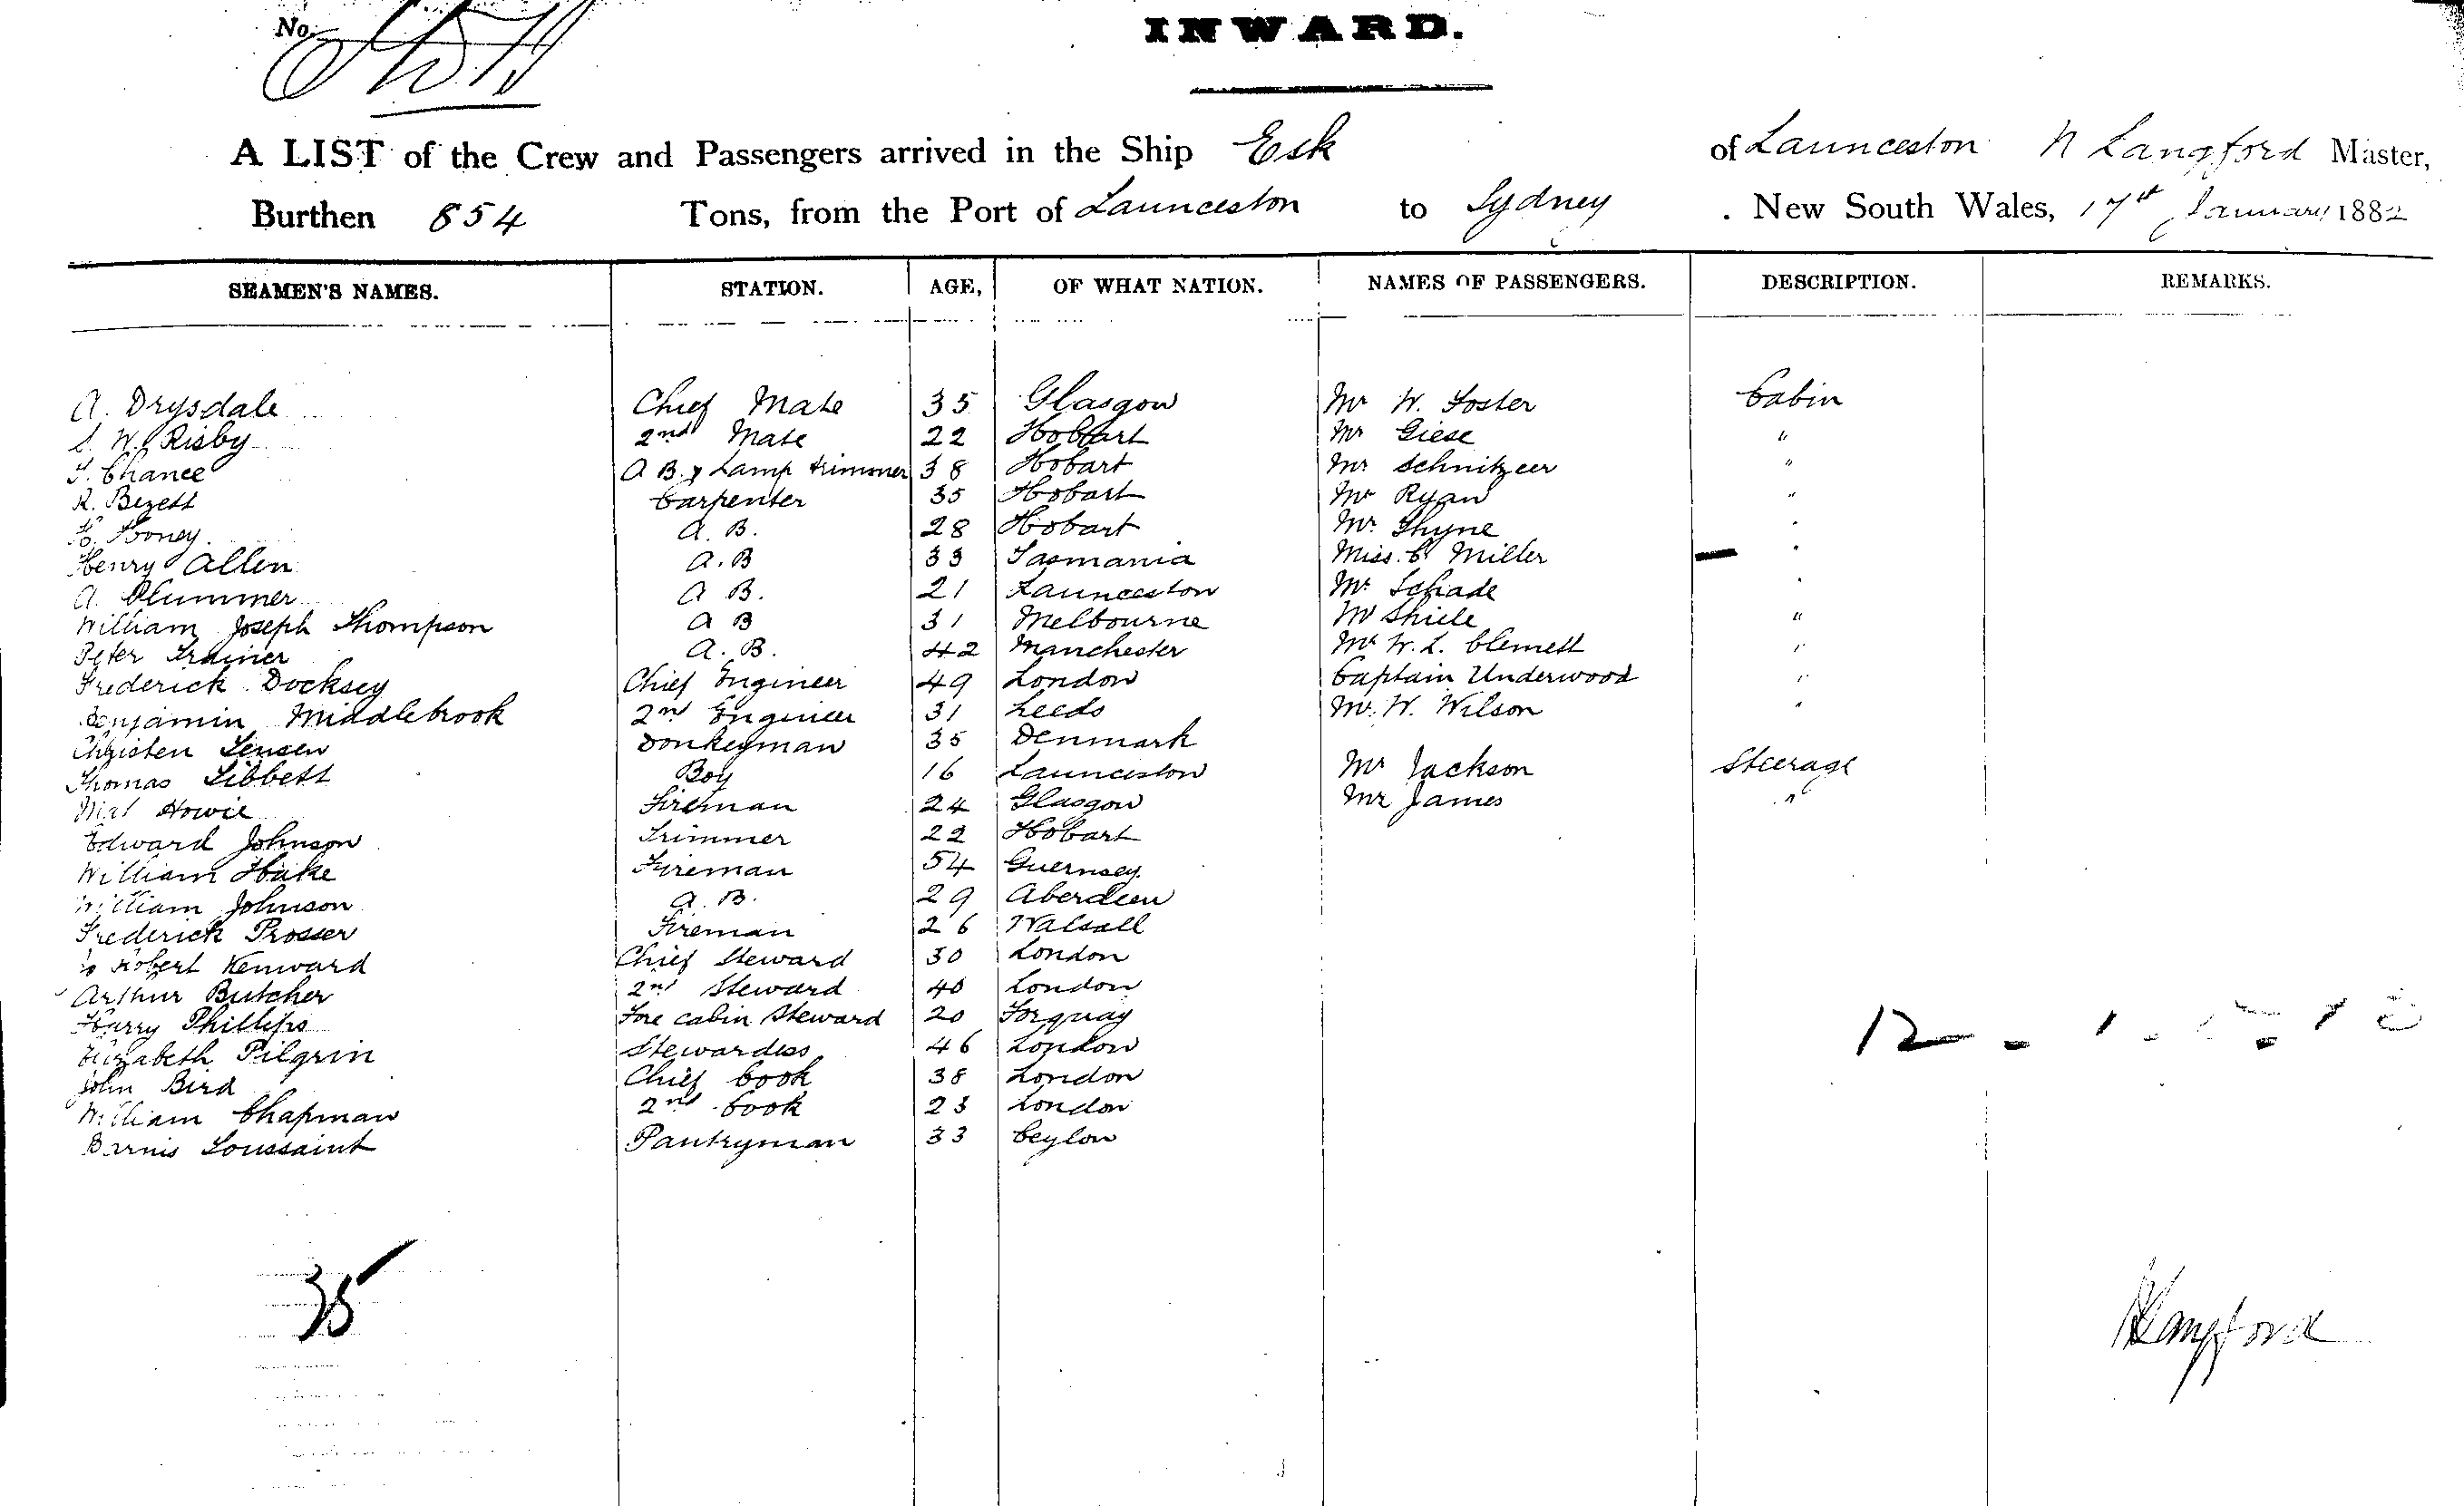 No.
INWARD.
A LIST of the Crew and Passengers arrived in the Ship Esk of Launceston N Langford Master,
Burthen 854 Tons, from the Port of Launceston to Sydney . New South Wales, 17th January 1882
SEAMEN'S NAMES. STATION. AGE, OF WHAT NATION. NAMES OF PASSENGERS. DESCRIPTION. REMARKS.
A. Drysdale Chief Mate 35 Glasgow Mr W. Foster Cabin
S. W. Risby 2nd Mate 22 Hobart Mr Giese "
T. Chance A B. & Lamp trimmer 38 Hobart Mr Schnitzeer "
R. Bezett Carpenter 35 Hobart Mr Ryan "
Tooney. A. B. 28 Hobart Mr. Thyne "
Henry Allen A. B 33 Tasmania Miss. C. Miller "
A. Plummer A B. 21 Launceston Mr. Schade "
William Joseph Thompson A B 31 Melbourne Mr Shiele "
Peter Trainer A. B. 42 Manchester Mr W. L. Clemett "
Frederick Docksey Chief Engineer 49 London Captain Underwood "
Benjamin Middlebrook 2nd Engineer 31 Leeds Mr. W. Wilson "
Christen Jensen Donkeyman 35 Denmark
Thomas Tibbett Boy 16 Launceston Mr Jackson Steerage
Howie Fireman 24 Glasgow Mr James "
Edward Johnson Trimmer 22 Hobart
William Hake Fireman 54 Guernsey.
William Johnson A. B. 29 Aberdeen
Frederick Prosser Fireman 26 Walsall
Robert Kenward Chief Steward 30 London
Arthur Butcher 2nd Steward 40 London
Harry Phillips Fore cabin Steward 20 Torquay
Elizabeth Pilgrin Stewardess 46 London
John Bird Chief Cook 38 London
William Chapman 2nd Cook 23 London
Toussaint Pantryman 33 Ceylon
12
35
N Langford